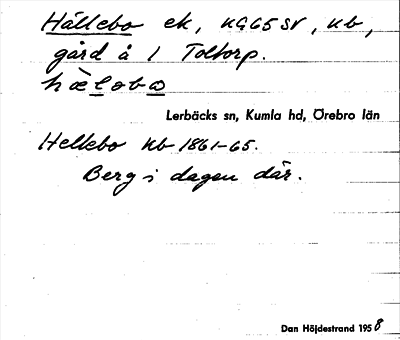 Hällebo ek, KG65SV, kb,
gård å 1 Toltorp.
hὲlobω
Lerbäcks sn, Kumla hd, Örebro län
Hellebo kb 1861-65.
Berg i dagen där.
Dan Höjdestrand 1958